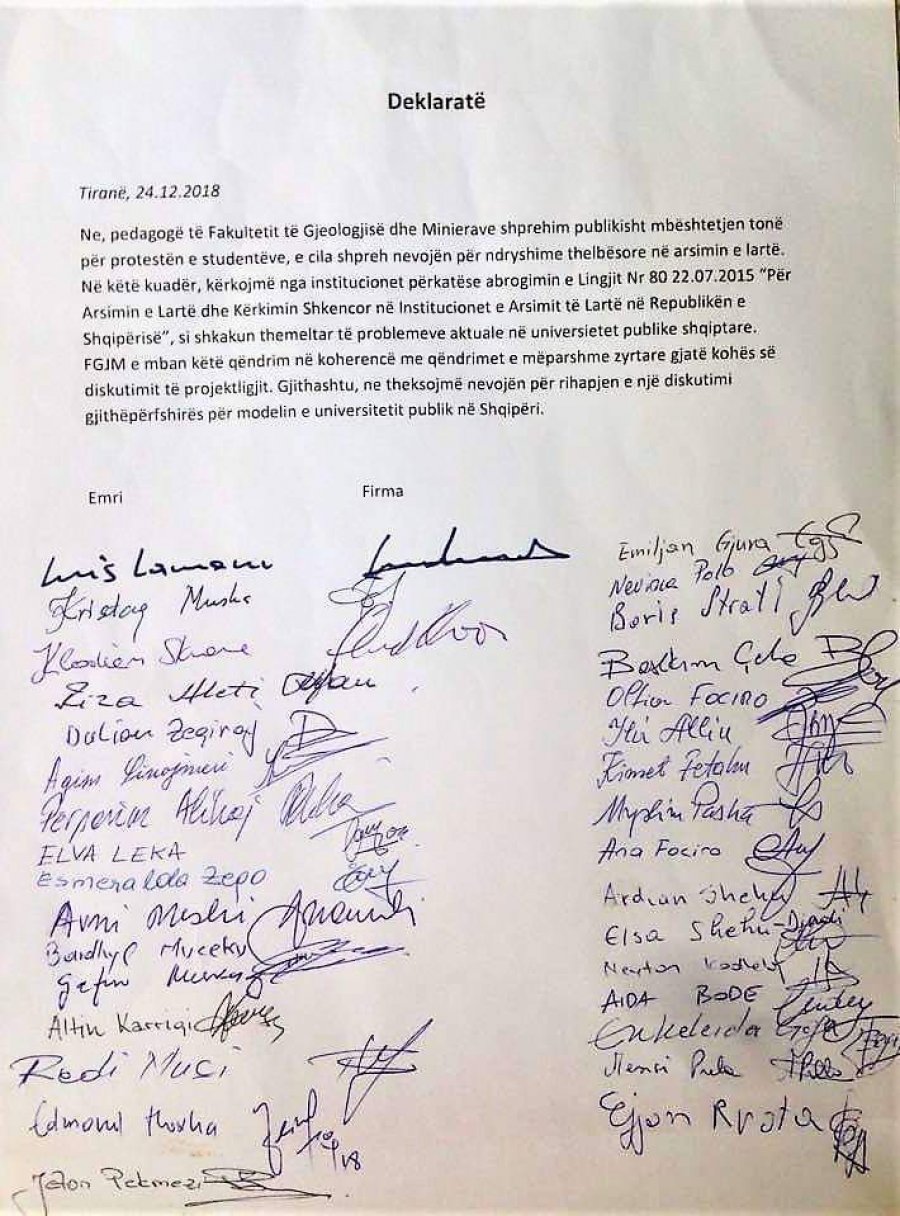 Deklaratë
Tiranë, 24.12.2018
Ne, pedagogë të Fakultetit të Gjeologjisë dhe Minierave shprehim publikisht mbështetjen tonë
për protestën e studentëve, e cila shpreh nevojën për ndryshime thelbësore në arsimin e lartë.
Në këtë kuadër, kërkojmë nga institucionet përkatëse abrogimin e Lingjit Nr 80 22.07.2015 “Për
Arsimin e Lartë dhe Kërkimin Shkencor në Institucionet e Arsimit të Lartë në Republikën e
Shqipërisë”, si shkakun themeltar të problemeve aktuale në universietet publike shqiptare.
FGJM e mban këtë qëndrim në koherencë me qëndrimet e mëparshme zyrtare gjatë kohës së
diskutimit të projektligjit. Gjithashtu, ne theksojmë nevojën për rihapjen e një diskutimi
gjithëpërfshirës për modelin e universitetit publik në Shqipëri.
Emri Firma
Kristaq Musha
Klodian
Dulian Zeqiraj
Agim
Perparim Alikaj
ELVA LEKA
Esmeralda Zepo
Avni Meshi
Bardhyl Muceku
Altin Karriqi
Redi Muçi
Edmond Hoxha
Jeton Pekmezi
Emiljan Gjura
Boris Strati
Bashkim Çela
Oltion Fociro
Ilir Alliu
Kimet Fetahu
Myslim Pasha
Ana Fociro
Ardian Shehu
Elsa Shehu-
AIDA BODE
Enkeleida
Gjon